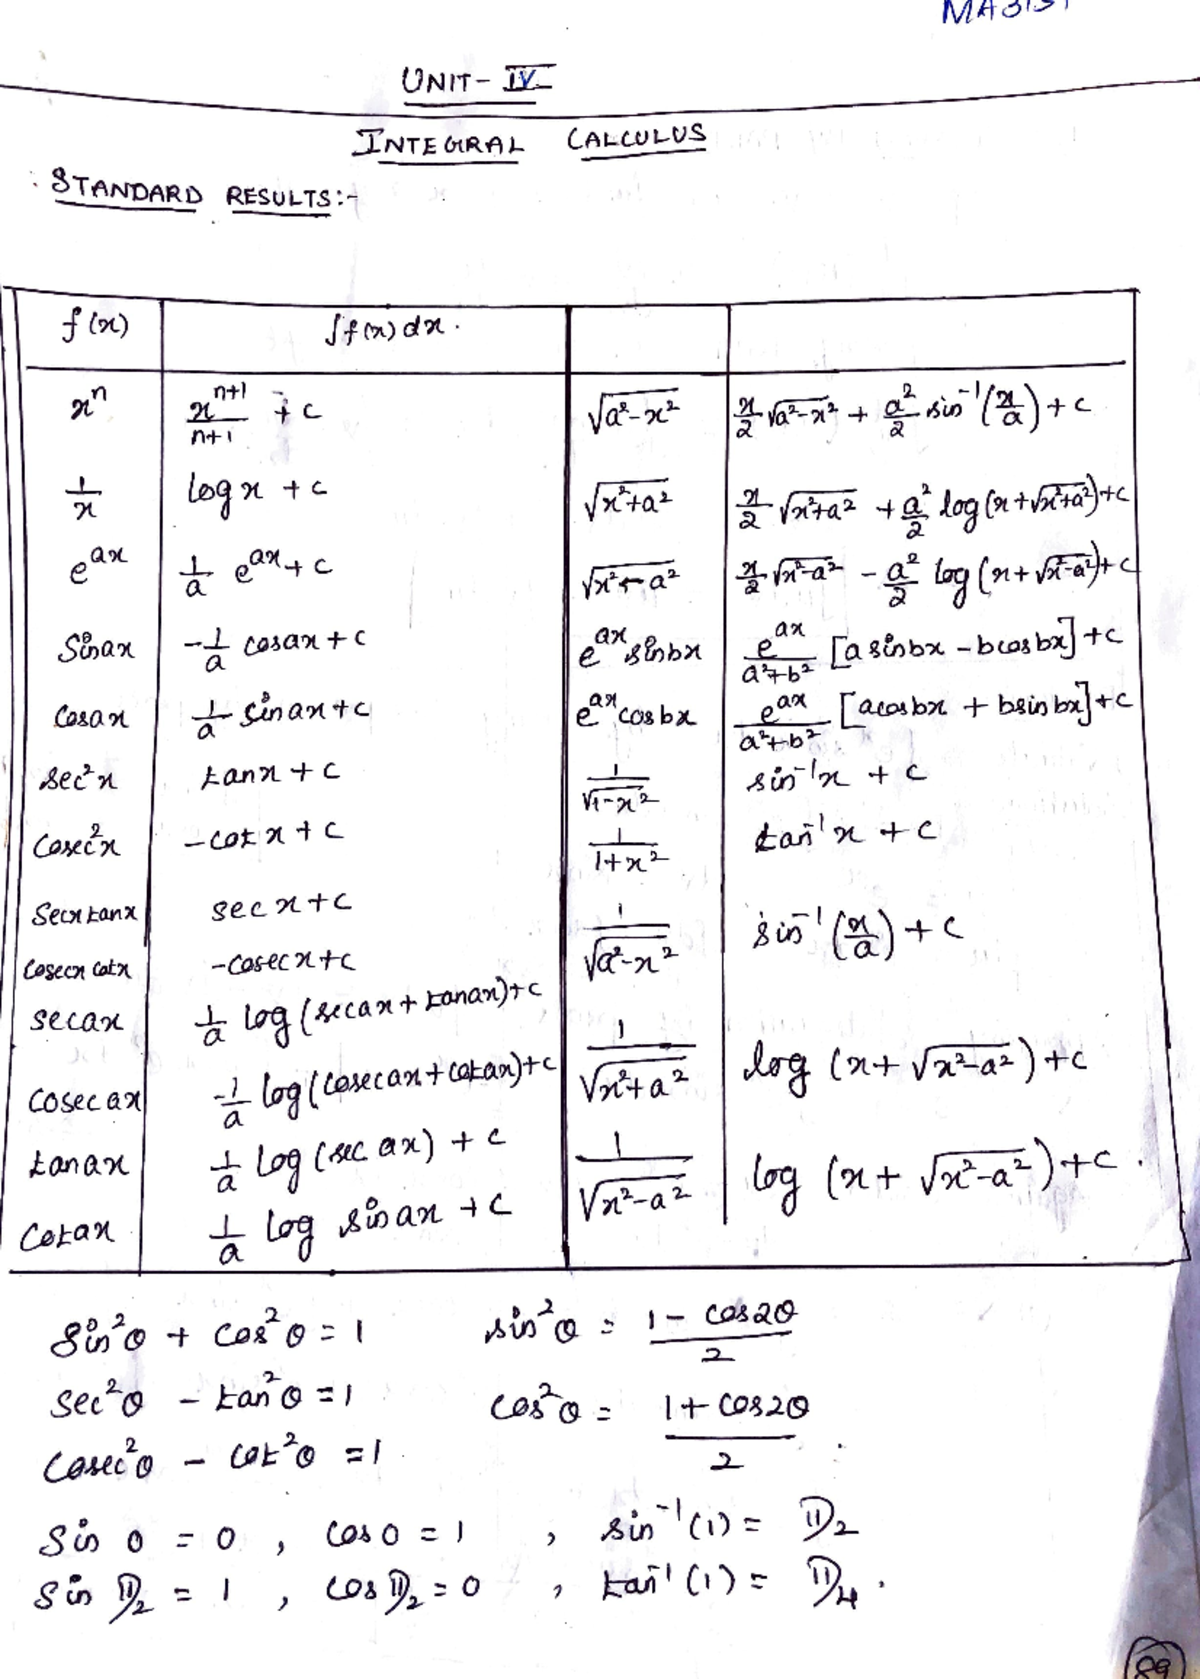 MA3151
UNIT - IV
INTEGRAL CALCULUS
STANDARD RESULTS:-
f(x) ∫f(x) dx.
xⁿ xⁿ⁺¹/n+1 + c √a²-x² x/2 √a²-x² + a²/2 sin⁻¹(x/a) + c
1/x log x + c √x²+a² x/2 √x²+a² + a²/2 log(x+√x²+a²)+c
e^ax 1/a e^ax + c √x²-a² x/2 √x²-a² - a²/2 log(x+√x²-a²)+c
Sinax -1/a cosax + c e^ax sinbx e^ax/a²+b² [a sinbx - bcosbx]+c
Cosax 1/a sinax+c e^ax cosbx e^ax/a²+b² [acosbx + bsinbx]+c
sec²x tanx + c 1/√1-x² sin⁻¹x + c
Cosec²x -cotx + c 1/1+x² tan⁻¹x + c
Secxtanx secx+c 1/√a²-x² sin⁻¹(x/a) + c
Cosecx cotx -cosecx+c
secax 1/a log(secax+tanax)+c 1/√x²+a² log(x+√x²-a²)+c
Cosecax -1/a log(cosecax+cotax)+c
tanax 1/a log(sec ax) + c 1/√x²-a² log(x+√x²-a²)+c.
Cotax 1/a log sinax + c
Sin²θ + cos²θ = 1 sin²θ = 1-cos2θ/2
Sec²θ - tan²θ = 1 cos²θ = 1+cos2θ/2
Cosec²θ - cot²θ = 1
Sin 0 = 0, cos 0 = 1, sin⁻¹(1) = π/2
Sin π/2 = 1, cos π/2 = 0, tan⁻¹(1) = π/4.
89